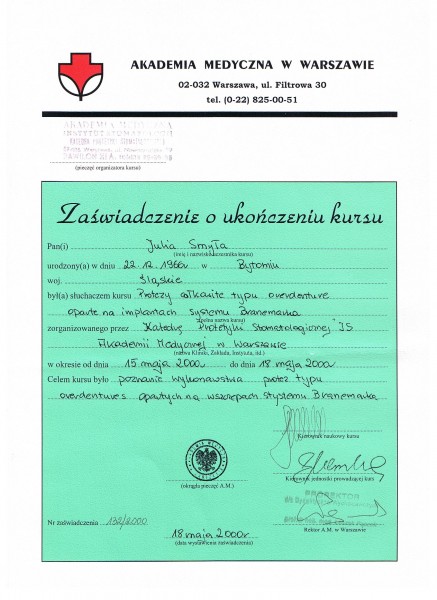 AKADEMIA MEDYCZNA W WARSZAWIE
02-032 Warszawa, ul. Filtrowa 30
tel. (0-22) 825-00-51
AKADEMIA MEDYCZNA
INSTYTUT STOMATOLOGII
(pieczęć organizatora kursu)
Zaświadczenie o ukończeniu kursu
Pan(i) Julia Smyła
(imię i nazwisko uczestnika kursu)
urodzony(a) w dniu 22.12.1966r w Bytomiu
woj. śląskie
był(a) słuchaczem kursu Protezy całkowite typu overdenture
oparte na implantach systemu Branemarka
(pełna nazwa kursu)
zorganizowanego przez Katedrę Protetyki Stomatologicznej IS
Akademii Medycznej w Warszawie
(nazwa Kliniki, Zakładu, Instytutu, itd.)
w okresie od dnia 15 maja 2000r do dnia 18 maja 2000r
Celem kursu było poznanie wykonawstwa protez typu
overdentures opartych na wszczepach Systemu Branemarka
Kierownik naukowy kursu
Kierownik jednostki prowadzącej kurs
(okrągła pieczęć A.M.)
PROREKTOR
Rektor A.M. w Warszawie
Nr zaświadczenia 132/2000
18 maja 2000r
(data wystawienia zaświadczenia)